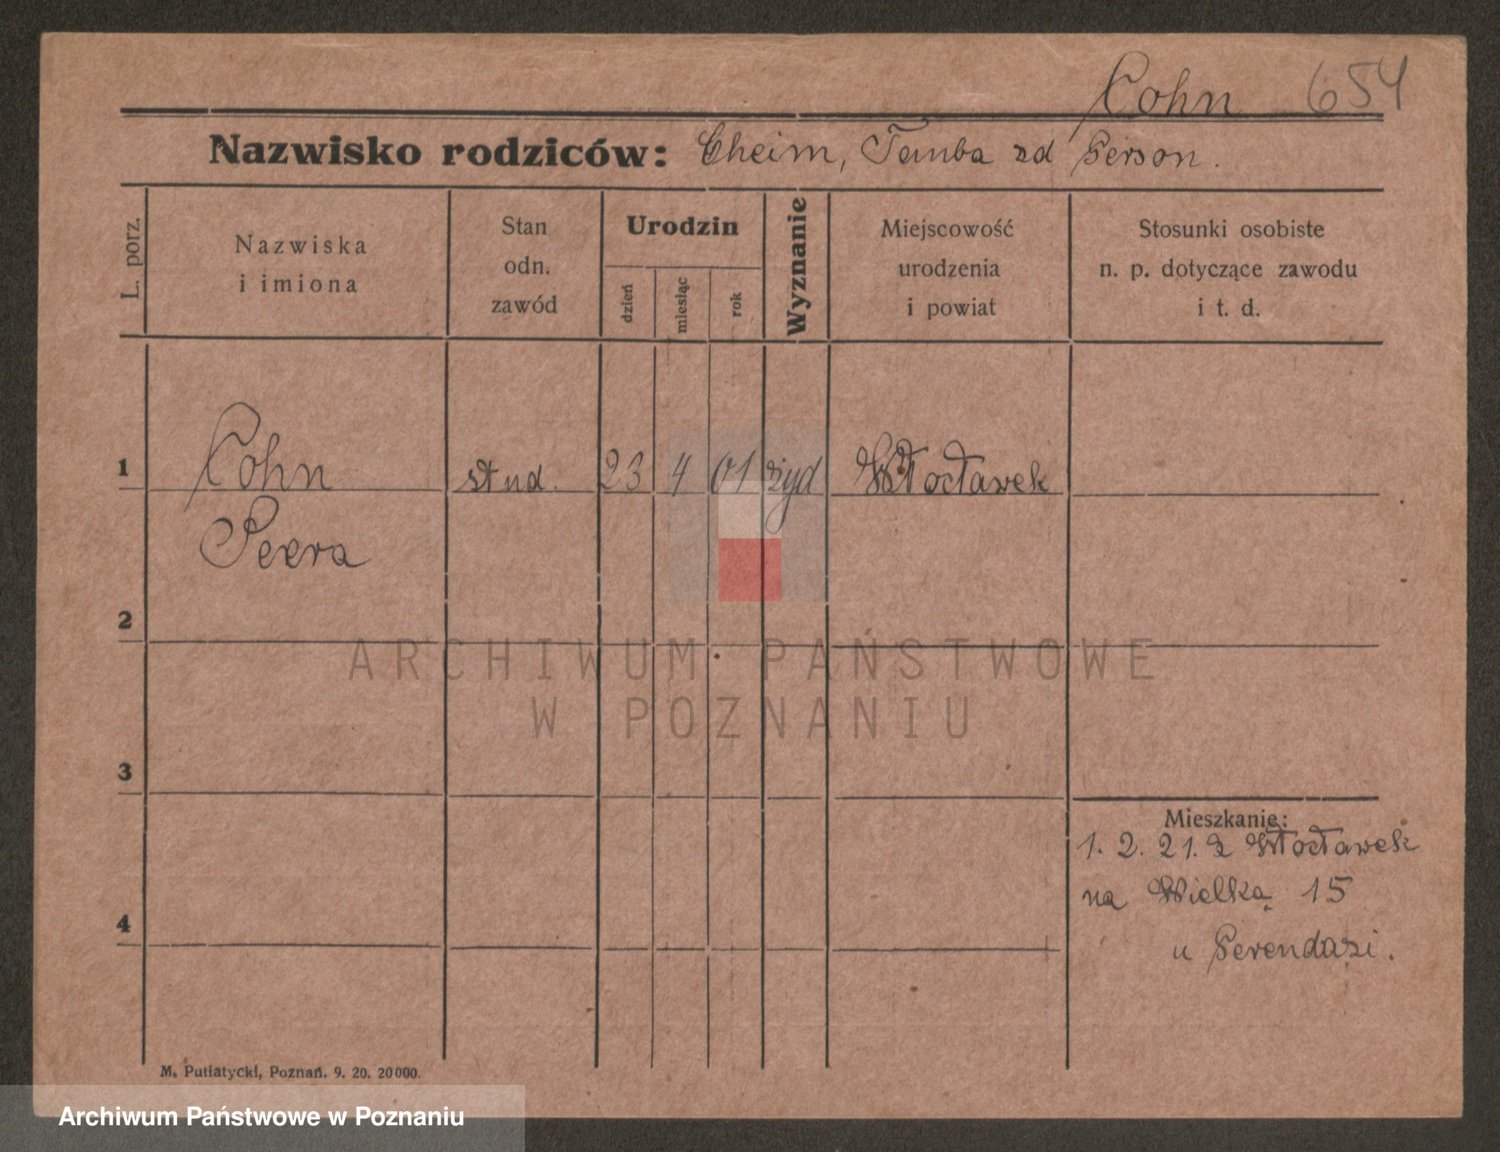 Cohn 654
Nazwisko rodziców: Cheim, Tauba zd Gerson.
L. porz.
Nazwiska
i imiona
Stan
odn.
zawód
Urodzin
dzień
miesiąc
rok
Wyznanie
Miejscowość
urodzenia
i powiat
Stosunki osobiste
n. p. dotyczące zawodu
i t. d.
1 Cohn stud. 23 4 01 żyd Włocławek
2
3
4
Mieszkanie:
1. 2. 21. z Włocławek
na Wielką 15
u
M. Putiatycki, Poznań. 9. 20. 20000.
ARCHIWUM PAŃSTWOWE
W POZNANIU
Archiwum Państwowe w Poznaniu